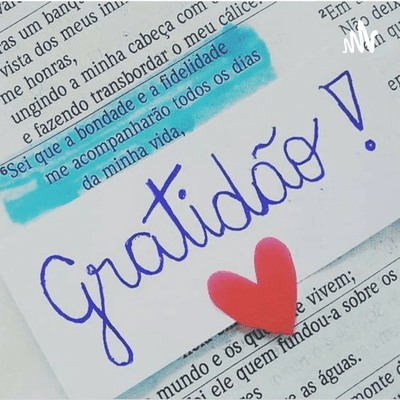 as um banq
vista dos meus inim
me honras,
ungindo a minha cabeça com
e fazendo transbordar o meu cálice.
⁶Sei que a bondade e a fidelidade
me acompanharão todos os dias
da minha vida,
²Em
Não dei
Gratidão!
mundo e os que vivem;
foi ele quem fundou-a sobre os
as águas.
monte d